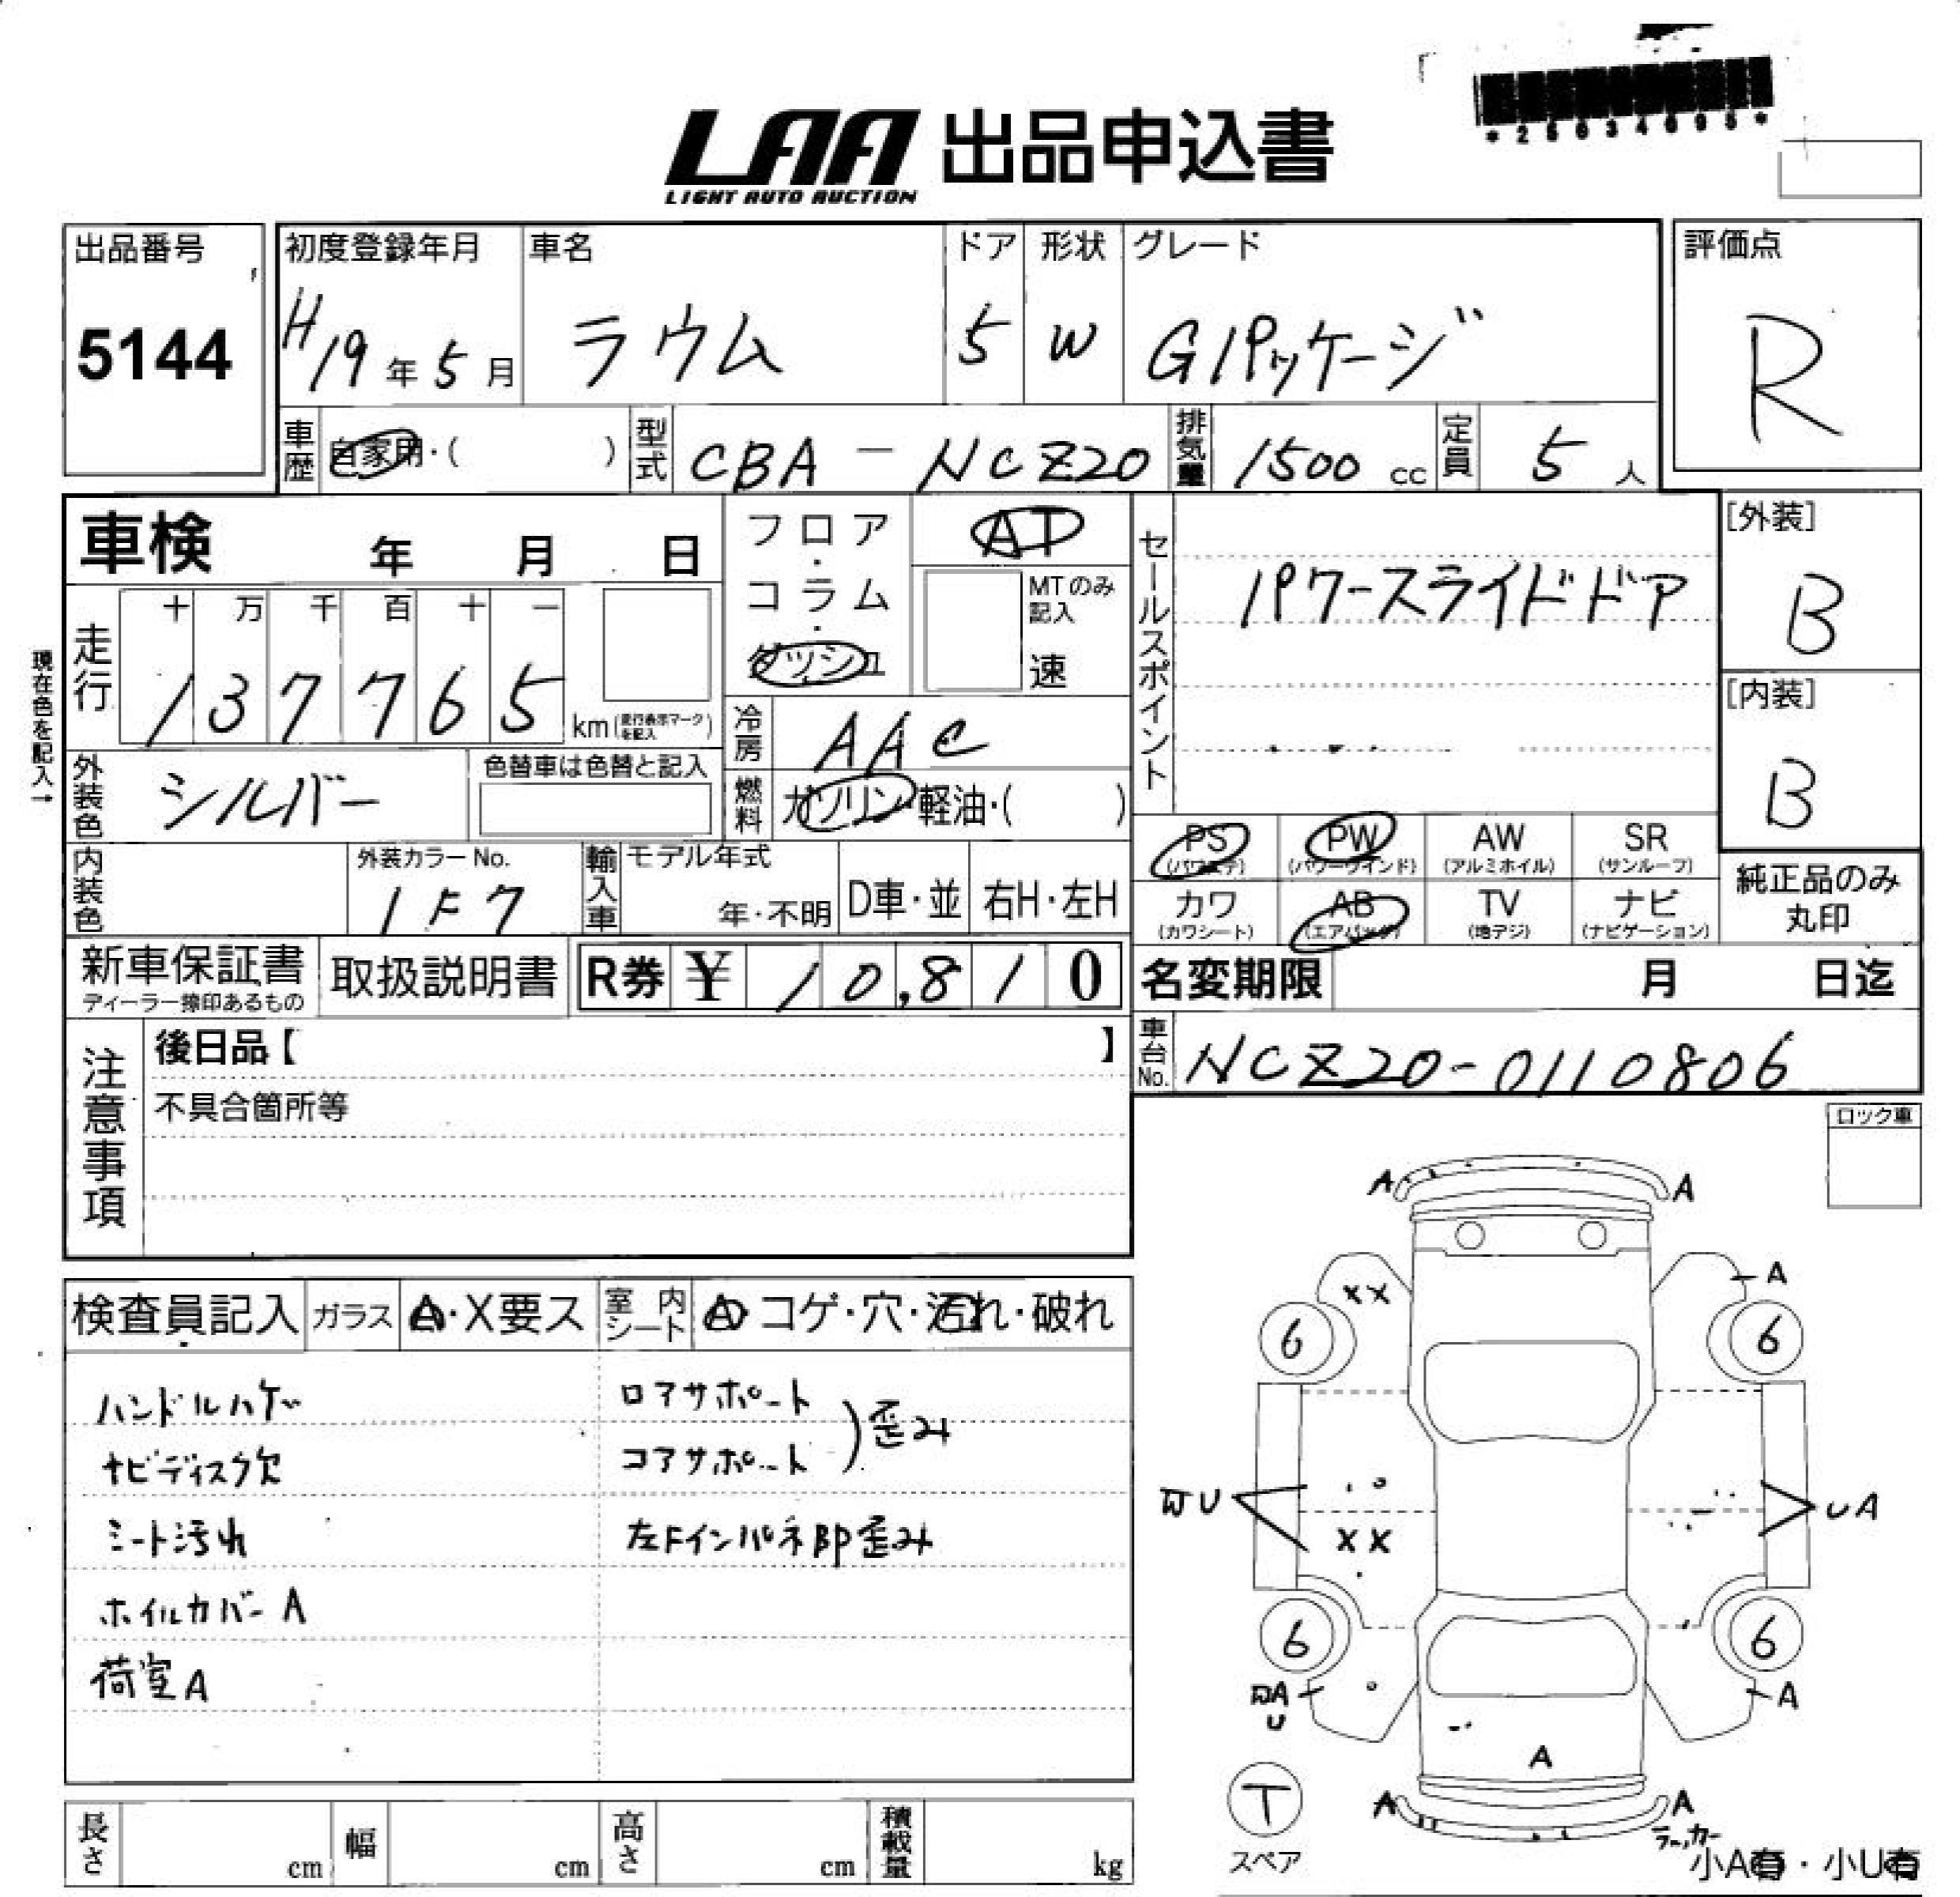 LAA 出品申込書
LIGHT AUTO AUCTION
出品番号
5144
初度登録年月
H19年5月
車名
ラウム
ドア
5
形状
W
グレード
Gパッケージ
評価点
R
車歴
自家用・( )
型式
CBA-NCZ20
排気量
1500 cc
定員
5人
車検 年 月 日
フロア・コラム・ダッシュ
AT
MTのみ記入
速
セールスポイント
パワースライドドア
[外装]
B
[内装]
B
現在色を記入→
走行
十 万 千 百 十 一
137765
km(走行表示マークを記入)
冷房
AAC
燃料
ガソリン・軽油・( )
外装色
シルバー
色替車は色替と記入
内装色
外装カラーNo.
1F7
輸入車
モデル年式
年・不明
D車・並
右H・左H
PS
(パワステ)
PW
(パワーウインド)
AW
(アルミホイル)
SR
(サンルーフ)
カワ
(カワシート)
AB
(エアバッグ)
TV
(地デジ)
ナビ
(ナビゲーション)
純正品のみ
丸印
新車保証書
ディーラー捺印あるもの
取扱説明書
R券 ¥10,810
名変期限 月 日迄
車台No.
NCZ20-0110806
注意事項
後日品【 】
不具合箇所等
ロック車
検査員記入
ガラス
A・X要ス
室内シート
A・コゲ・穴・汚れ・破れ
ハンドルハゲ
ナビディスク欠
シート汚れ
ホイルカバーA
荷室A
ロアサポート
コアサポート
)歪み
左Fインパネ即歪み
A A
XX
A
6 6
U
XX
UA
6 6
A
U
A
A
T
スペア
A A
小A有・小U有
長さ cm
幅 cm
高さ cm
積載量 kg